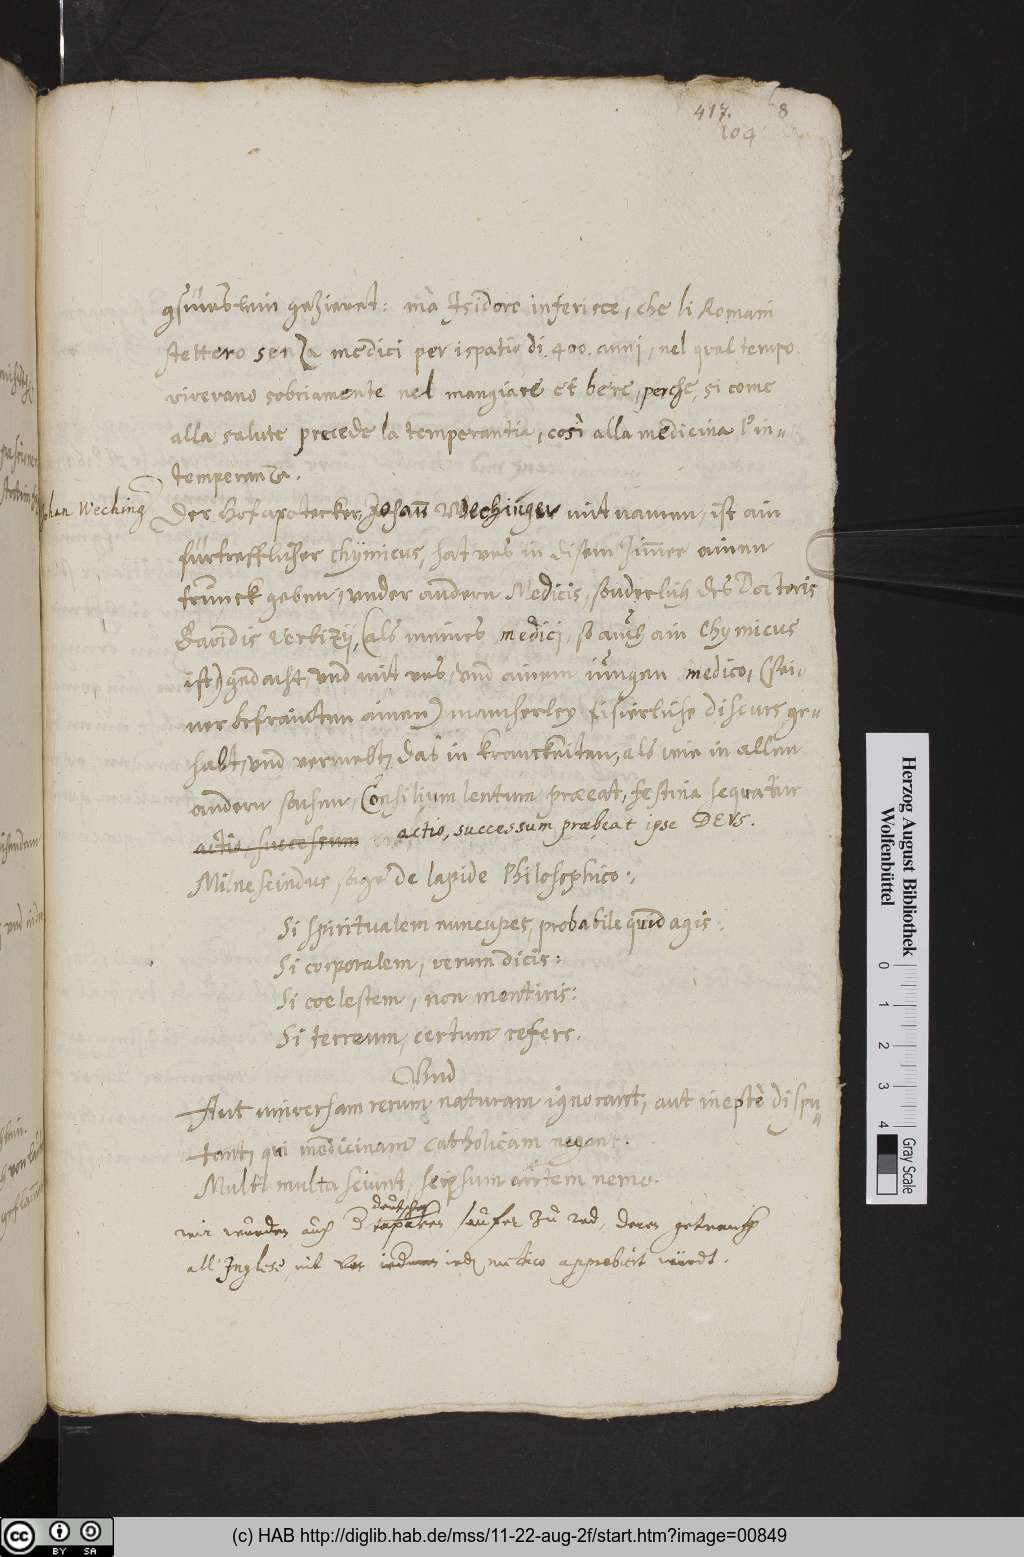 417. 8
104
geziert: mà Isidoro inferisce, che li Romani
stettero senza medici per ispatio di 400. anni, nel qual tempo
vivevano sobriamente nel mangiare et bere, perche, si come
alla salute precede la temperantia, così alla medicina l'in=
temperanza.
Johan Weching
Der Hofapotecker, Johann Wechinger mit namen, ist ain
fürtrefflicher chÿmicus, hat uns in disem Zimer ainen
trunck geben, under andern Medicis, sonderlich des Doctoris
Davidis Verbizij, (als meines medici, so auch ain Chymicus
ist) gedacht, und mit uns, und ainem iungen medico, (sei=
ner befraindten ainen) mancherley discurs, ge=
habt, und vermelt, das in kranckheiten, als wie in allen
andern sachen, Consilium lentum præeat, festina sequatur
actio, successum actio, successum præbeat ipse DEVS.
de lapide Philosophico:
Si spiritualem nuncupes, probabile quid agis:
Si corporalem, verum dicis:
Si coelestem, non mentiris:
Si terreum, certum refers.
Und
Aut universam rerum naturam ignorant, aut ineptè dispu=
tant, qui medicinam catholicam negant.
Multi multa sciunt, seipsum autem nemo.
deutsche
wir wurden auch zu deren getranck
all' Inglese, mit medico approbiert würdt.
Herzog August Bibliothek
Wolfenbüttel
0 1 2 3 4
Gray Scale
cc BY SA
(c) HAB http://diglib.hab.de/mss/11-22-aug-2f/start.htm?image=00849